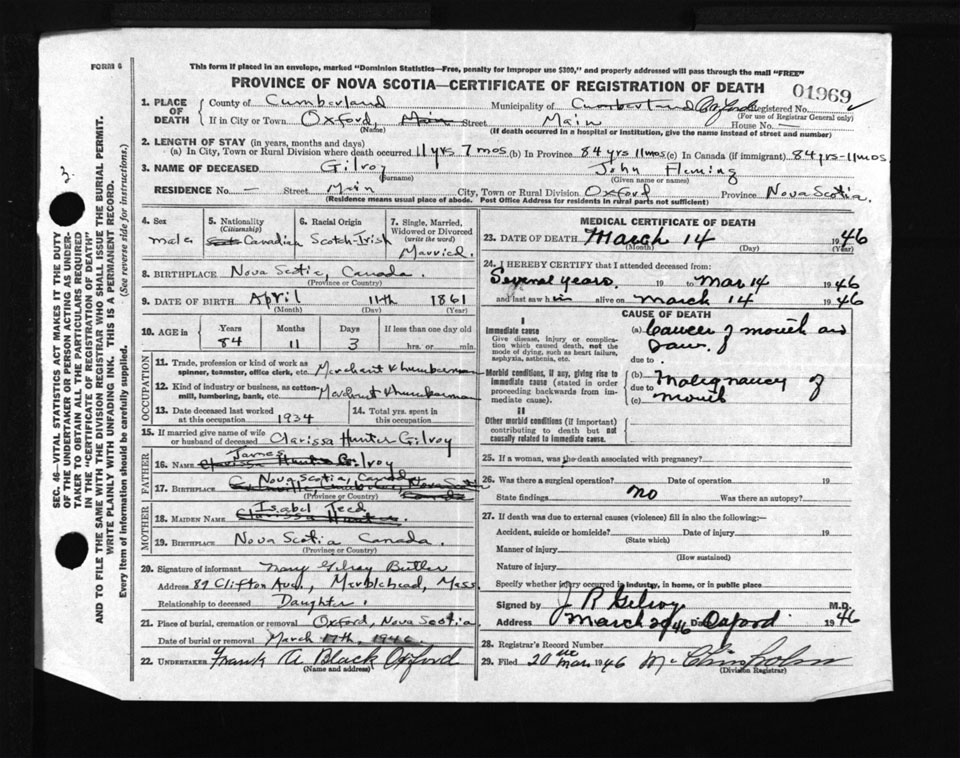 FORM 6
This form if placed in an envelope, marked "Dominion Statistics—Free, penalty for improper use $300," and properly addressed will pass through the mail "FREE"
PROVINCE OF NOVA SCOTIA—CERTIFICATE OF REGISTRATION OF DEATH
01969
1. PLACE OF DEATH
County of Cumberland Municipality of Cumberland Oxford Registered No.
(For use of Registrar General only)
If in City or Town Oxford, Main Street Main House No. —
(Name) (If death occurred in a hospital or institution, give the name instead of street and number)
2. LENGTH OF STAY (in years, months and days)
(a) In City, Town or Rural Division where death occurred 11 yrs 7 mos (b) In Province 84 yrs 11 mos (c) In Canada (if immigrant) 84 yrs-11 mos
3. NAME OF DECEASED Gilroy John Fleming
(Surname) (Given name or names)
RESIDENCE No. — Street Main City, Town or Rural Division Oxford Province Nova Scotia.
(Residence means usual place of abode. Post Office Address for residents in rural parts not sufficient)
4. Sex
male
5. Nationality
(Citizenship)
Canadian
6. Racial Origin
Scotch-Irish
7. Single, Married, Widowed or Divorced
(write the word)
Married.
8. BIRTHPLACE Nova Scotia, Canada.
(Province or Country)
9. DATE OF BIRTH April 11th 1861
(Month) (Day) (Year)
10. AGE in
Years Months Days If less than one day old
84 11 3 hrs. or min.
OCCUPATION
11. Trade, profession or kind of work as spinner, teamster, office clerk, etc. Merchant & lumberman
12. Kind of industry or business, as cotton-mill, lumbering, bank, etc. Merchant & lumberman
13. Date deceased last worked at this occupation 1934
14. Total yrs. spent in this occupation
15. If married give name of wife or husband of deceased Clarissa Hunter Gilroy
FATHER
16. NAME James Clarissa Hunter Gilroy
17. BIRTHPLACE Nova Scotia, Canada
(Province or Country)
MOTHER
18. MAIDEN NAME Isabel Teed
Clarissa Hunter.
19. BIRTHPLACE Nova Scotia Canada.
(Province or Country)
20. Signature of informant Mary Gilroy Butler
Address 89 Clifton Ave., Marblehead, Mass.
Relationship to deceased Daughter.
21. Place of burial, cremation or removal Oxford, Nova Scotia
Date of burial or removal March 17th, 1946.
22. UNDERTAKER Frank A Black Oxford
(Name and address)
MEDICAL CERTIFICATE OF DEATH
23. DATE OF DEATH March 14 1946
(Day) (Year)
24. I HEREBY CERTIFY that I attended deceased from:
Several years. 19 to Mar 14 1946
and last saw him alive on March 14 1946
CAUSE OF DEATH
I
Immediate cause
Give disease, injury or complication which caused death, not the mode of dying, such as heart failure, asphyxia, asthenia, etc.
(a) Cancer of mouth and Jaw.
due to
Morbid conditions, if any, giving rise to immediate cause (stated in order proceeding backwards from immediate cause).
(b) Malignancy of
due to
(c) mouth
II
Other morbid conditions (if important) contributing to death but not causally related to immediate cause.
25. If a woman, was the death associated with pregnancy?
26. Was there a surgical operation? Date of operation 19
State findings no Was there an autopsy?
27. If death was due to external causes (violence) fill in also the following:—
Accident, suicide or homicide? Date of injury 19
(State which)
Manner of injury
(How sustained)
Nature of injury
Specify whether injury occurred in industry, in home, or in public place
Signed by J R Gilroy M.D.
Address March 20 46 Date Oxford 1946
28. Registrar's Record Number
29. Filed 20 Mar 1946 Chisholm
(Division Registrar)
3.
SEC. 46—VITAL STATISTICS ACT MAKES IT THE DUTY
OF THE UNDERTAKER OR PERSON ACTING AS UNDER-
TAKER TO OBTAIN ALL THE PARTICULARS REQUIRED
IN THE "CERTIFICATE OF REGISTRATION OF DEATH"
AND TO FILE THE SAME WITH THE DIVISION REGISTRAR WHO SHALL ISSUE THE BURIAL PERMIT.
WRITE PLAINLY WITH UNFADING INK. THIS IS A PERMANENT RECORD.
Every item of information should be carefully supplied. (See reverse side for instructions.)